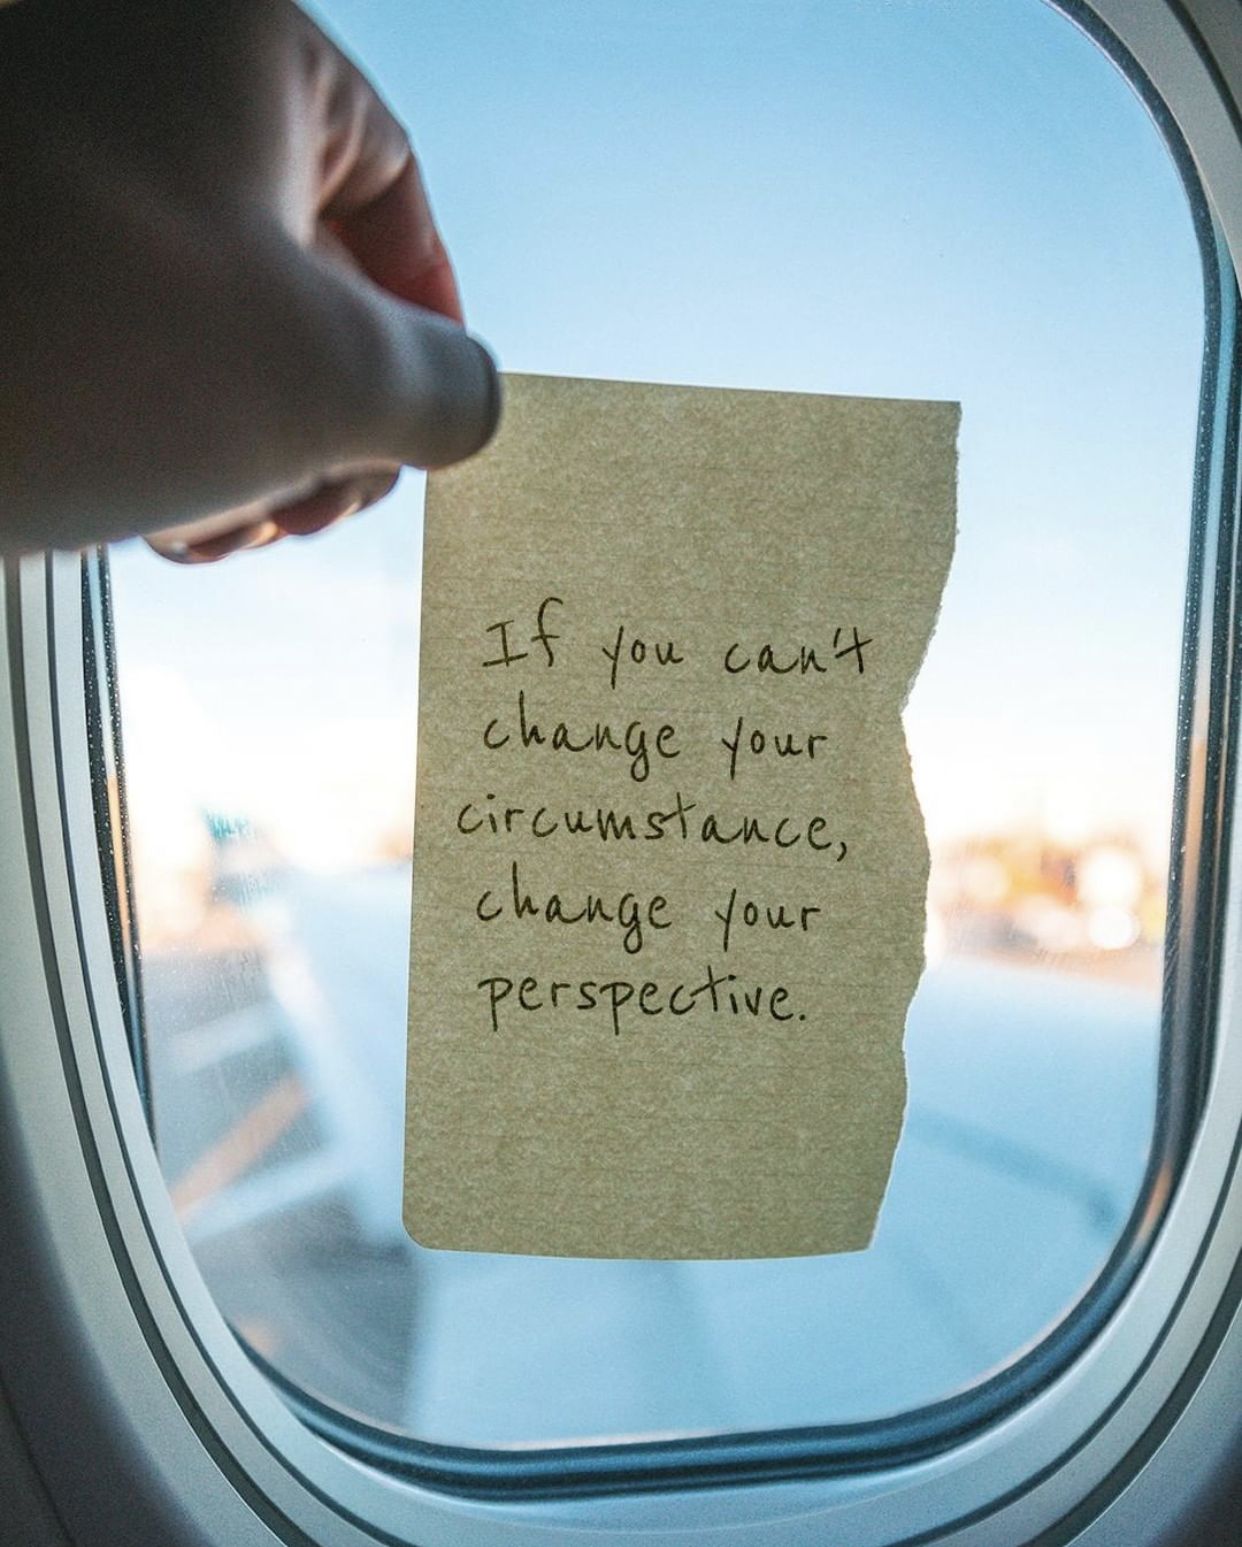 If you can't
change your
circumstance,
change your
perspective.